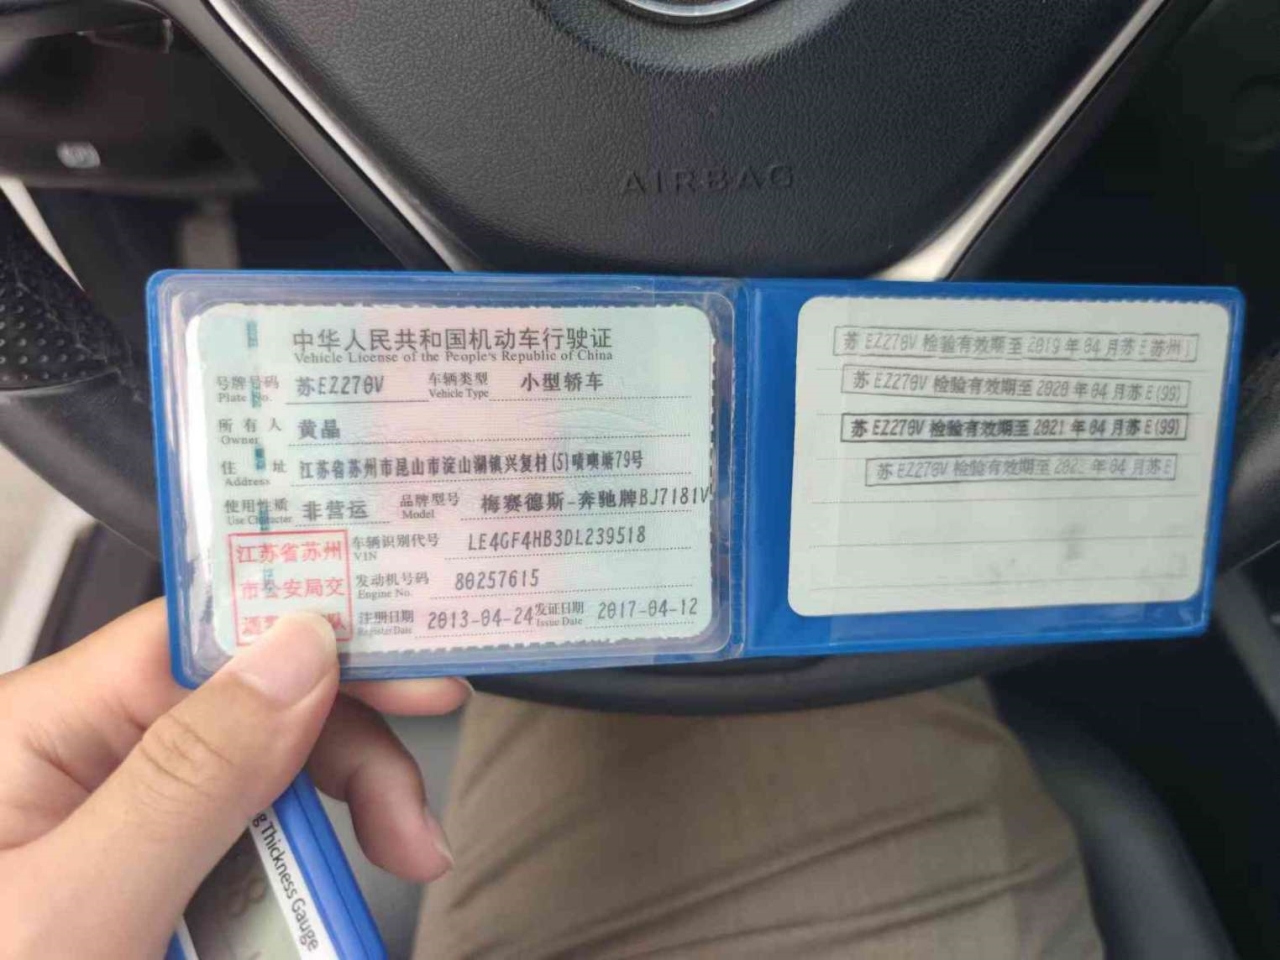 AIRBAG
中华人民共和国机动车行驶证
Vehicle License of the People's Republic of China
号牌号码 苏EZ270V 车辆类型 小型轿车
Plate No. Vehicle Type
所有人 黄晶
Owner
住址 江苏省苏州市昆山市淀山湖镇兴复村(5)啧噢塘79号
Address
使用性质 非营运 品牌型号 梅赛德斯-奔驰牌BJ7181V
Use Character Model
江苏省苏州
市公安局交
队
车辆识别代号 LE4GF4HB3DL239518
VIN
发动机号码 80257615
Engine No.
注册日期 2013-04-24 发证日期 2017-04-12
Register Date Issue Date
苏EZ270V检验有效期至2019年04月苏E苏州
苏EZ270V检验有效期至2020年04月苏E(99)
苏EZ270V检验有效期至2021年04月苏E(99)
苏EZ270V检验有效期至 年04月苏E
g Thickness Gauge